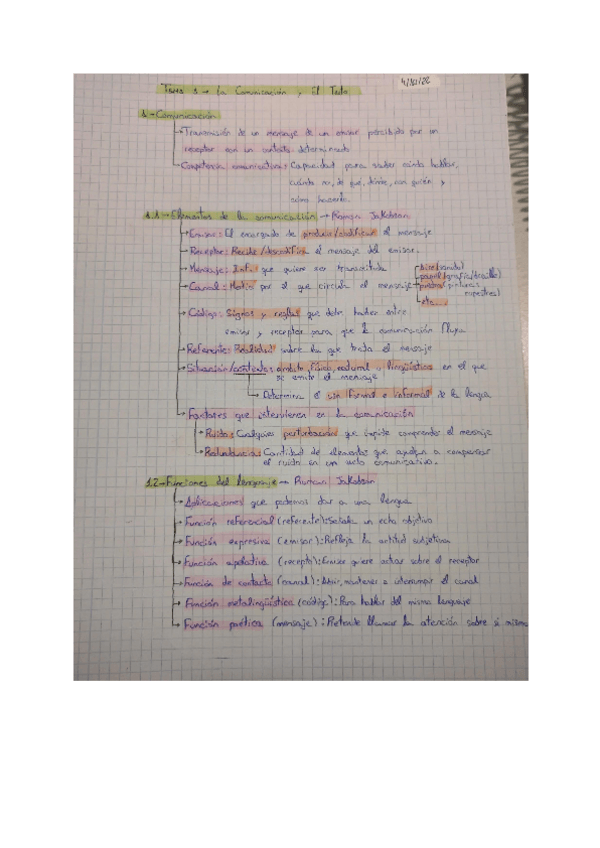 4/10/22
Tema 1 → La Comunicación y El Texto
1-Comunicación
Transmisión de un mensaje de un emisor percibido por un
receptor con un contexto determinado
Competencia comunicativa: Capacidad para saber cuándo hablar,
cuándo no, de qué, dónde, con quién y
cómo hacerlo.
1.1-Elementos de la comunicación → Roman Jakobson
Emisor: El encargado de producir/codificar el mensaje
Receptor: Recibe/descodifica el mensaje del emisor.
Mensaje: Info. que quiere ser transmitida
Canal: Medio por el que circula el mensaje
aire (sonido)
papel (grafía/arcilla)
piedra (pinturas
rupestres)
etc...
Código: Signos y reglas que debe haber entre
emisor y receptor para que la comunicación fluya
Referente: Realidad sobre la que trata el mensaje
Situación/contexto: ámbito físico, cultural o lingüístico en el que
se emite el mensaje
Determina el uso formal e informal de la lengua
Factores que intervienen en la comunicación
Ruido: Cualquier perturbación que impide comprender el mensaje
Redundancia: Cantidad de elementos que ayudan a compensar
el ruido en un acto comunicativo.
1.2-Funciones del lenguaje → Roman Jakobson
Aplicaciones que podemos dar a una lengua
Función referencial (referente): Señala un acto objetivo
Función expresiva (emisor): Refleja la actitud subjetiva
Función apelativa (receptor): Emisor quiere actuar sobre el receptor
Función de contacto (canal): Abrir, mantener o interrumpir el canal
Función metalingüística (código): Para hablar del mismo lenguaje
Función poética (mensaje): Pretende llamar la atención sobre sí mismo